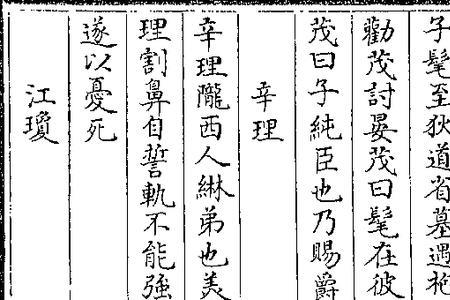 子髦至狄道省墓遇枹
勸茂討晏茂曰髦在彼
茂曰子純臣也乃賜爵
辛理
辛理隴西人綝弟也美
理割鼻自誓軌不能強
遂以憂死
江瓊